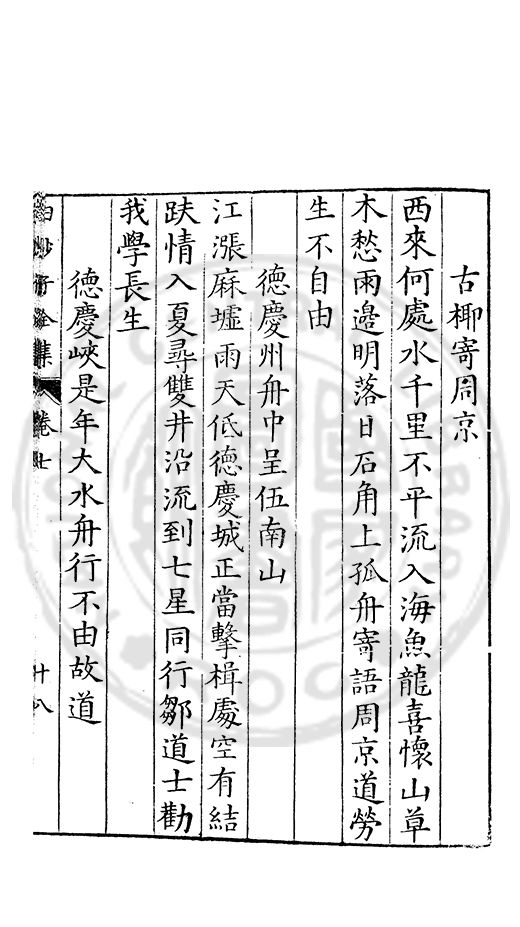 古榔寄周京
西來何處水千里不平流入海魚龍喜懷山草
木愁雨邉明落日石角上孤舟寄語周京道勞
生不自由
德慶州舟中呈伍南山
江漲麻墟雨天低德慶城正當擊楫處空有結
韈情入夏尋雙井沿流到七星同行鄒道士勸
我學長生
德慶峽是年大水舟行不由故道
白沙子全集 卷七 十八